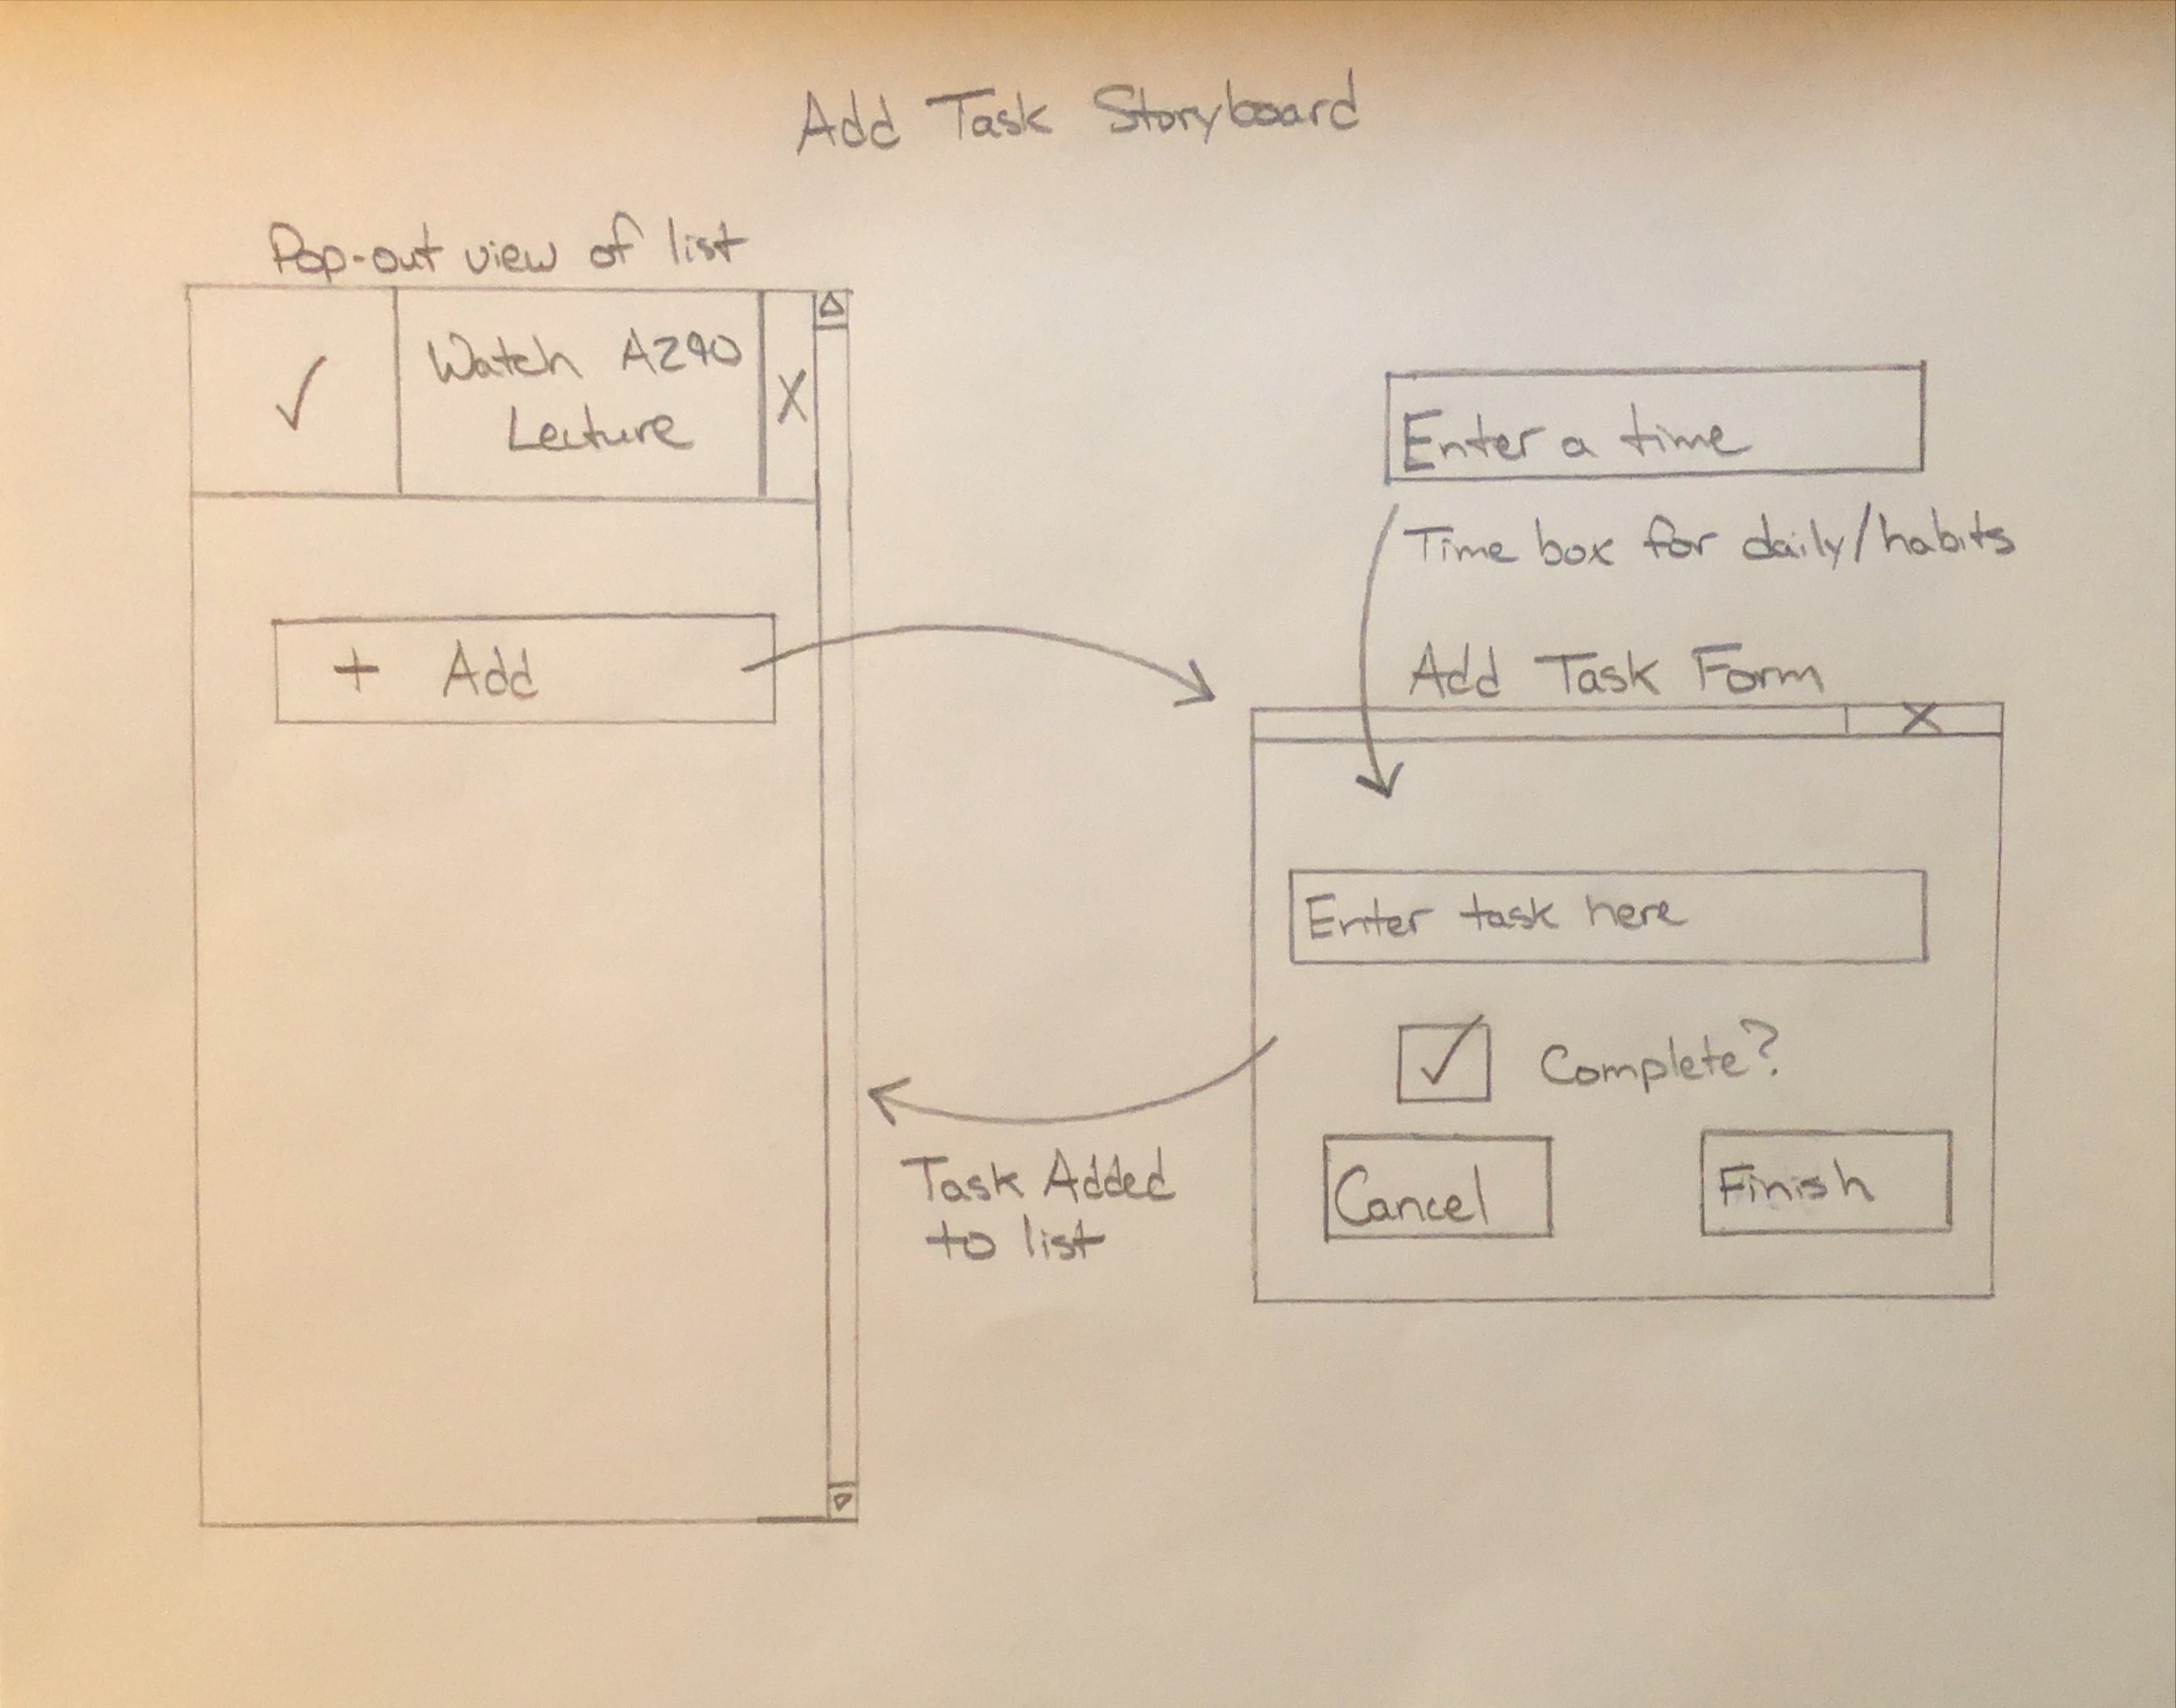 Add Task Storyboard
Pop-out view of list
✓
Watch A290
Lecture
X
+ Add
Enter a time
Time box for daily/habits
Add Task Form
X
Enter task here
✓ Complete?
Cancel
Finish
Task Added
to list